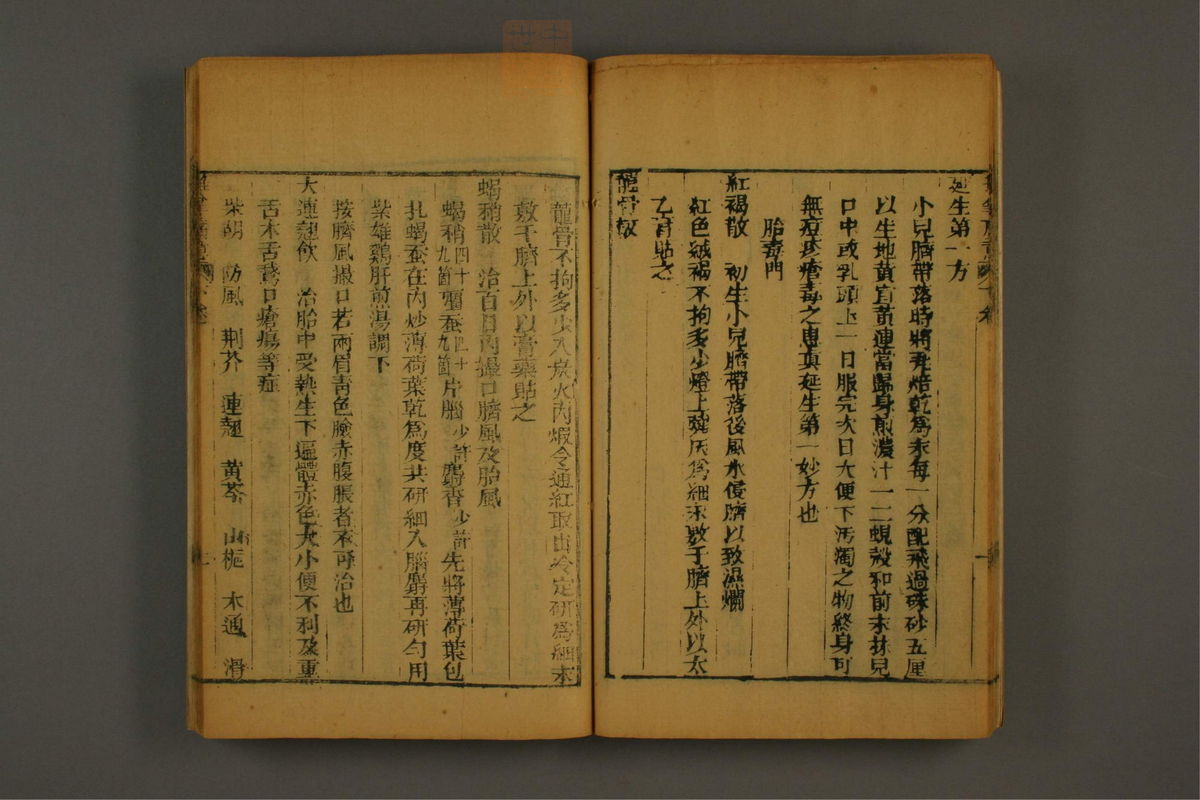 延生第一方
小兒臍帶落時將瓦焙乾為末每一分配飛過硃砂五厘
以生地黃宣黃連當歸身煎濃汁一二蜆殼和前末抹兒
口中或乳頭上一日服完次日大便下污濁之物終身可
無痘疹瘡毒之患真延生第一妙方也
胎毒門
紅褐散　初生小兒臍帶落後風水侵臍以致濕爛
紅色絨褐不拘多少燈上燒灰為細末敷于臍上外以太
乙膏貼之
龍骨散
龍骨不拘多少入炭火內煅令通紅取出冷定研為細末
敷于臍上外以膏藥貼之
蝎稍散　治百日內撮口臍風及胎風
蝎稍四十九箇殭蚕四十九箇片腦少許麝香少許先將薄荷葉包
扎蝎蚕在內炒薄荷葉乾為度共研細入腦麝再研勻用
紫雄鷄肝煎湯調下
按臍風撮口若兩眉青色臉赤腹脹者不可治也
大連翹飲　治胎中受熱生下遍體赤色大小便不利及重
舌木舌鵞口瘡瘍等症
柴胡　防風　荆芥　連翹　黃芩　山梔　木通　滑